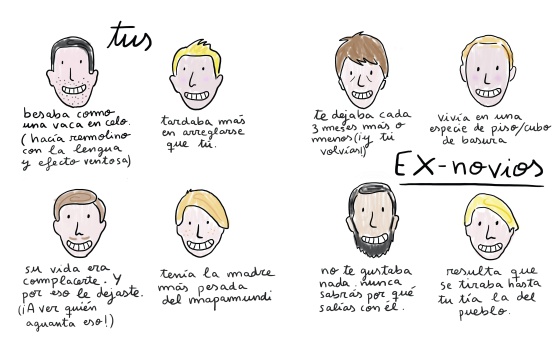 tus
besaba como
una vaca en celo.
(hacía remolino
con la lengua
y efecto ventosa)
tardaba más
en arreglarse
que tú.
te dejaba cada
3 meses más o
menos (¡y tú
volvías!)
vivía en una
especie de piso/cubo
de basura
EX-novios
su vida era
complacerte. Y
por eso le dejaste.
(¡A ver quién
aguanta eso!)
tenía la madre
más pesada
del mapamundi
no te gustaba
nada. nunca
sabrás por qué
salías con él.
resulta que
se tiraba hasta
tu tía la del
pueblo.